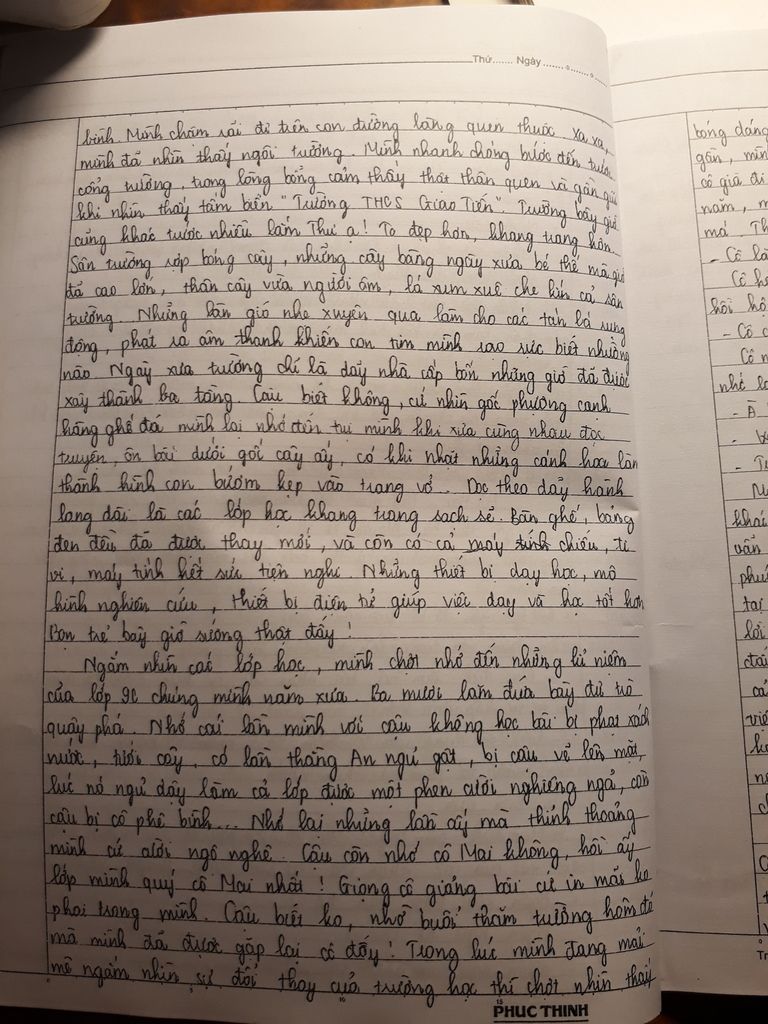 Thứ....... Ngày
bình. Mình chậm rãi đi trên con đường làng quen thuộc. Xa xa,
mình đã nhìn thấy ngôi trường. Mình nhanh chóng bước đến trước
cổng trường, trong lòng bỗng cảm thấy thật thân quen và gần gũi
khi nhìn thấy tấm biển "Trường THCS Giao Tiến". Trường bây giờ
cũng khác trước nhiều lắm Thư ạ! To đẹp hơn, khang trang hơn.
Sân trường rợp bóng cây, những cây bàng ngày xưa bé thế mà giờ
đã cao lớn, thân cây vừa người ôm, lá xum xuê che kín cả sân
trường. Những làn gió nhẹ xuyên qua làm cho các tán lá rung
động, phát ra âm thanh khiến con tim mình xao xuyến biết nhường
nào. Ngày xưa trường chỉ là dãy nhà cấp bốn nhưng giờ đã được
xây thành ba tầng. Cậu biết không, cứ nhìn gốc phượng cạnh
hàng ghế đá mình lại nhớ đến tụi mình khi xưa cùng nhau đọc
truyện, ôn bài dưới gốc cây ấy, có khi nhặt những cánh hoa làm
thành hình con bướm kẹp vào trang vở. Dọc theo dãy hành
lang dài là các lớp học khang trang sạch sẽ. Bàn ghế, bảng
đen đều đã được thay mới, và còn có cả máy chiếu, ti
vi, máy tính hết sức tiện nghi. Những thiết bị dạy học, mô
hình nghiên cứu, thiết bị điện tử giúp việc dạy và học tốt hơn
Bọn trẻ bây giờ sướng thật đấy!
Ngắm nhìn các lớp học, mình chợt nhớ đến những kỉ niệm
của lớp 9C chúng mình năm xưa. Ba mươi lăm đứa bày đủ trò
quậy phá. Nhớ cái lần mình với cậu không học bài bị phạt xách
nước, tưới cây, có lần thằng An ngủ gật, bị cậu vẽ lên mặt,
lúc nó ngủ dậy làm cả lớp được một phen cười nghiêng ngả, còn
cậu bị cô phê bình... Nhớ lại những lần ấy mà thỉnh thoảng
mình cứ cười ngô nghê. Cậu còn nhớ cô Mai không, hồi ấy
lớp mình quý cô Mai nhất! Giọng cô giảng bài cứ in mãi ko
phai trong mình. Cậu biết ko, nhờ buổi thăm trường hôm đó
mà mình đã được gặp lại cô đấy! Trong lúc mình đang mải
mê ngắm nhìn sự đổi thay của trường học thì chợt nhìn thấy
PHUC THINH
bóng dáng
gần, mìn
cô giá đi
năm, m
má. Th
- Cô là
Cô h
hồi hộ
- Cô c
Cô n
nhé l
- À
khái
vấn
phú
tại
lời